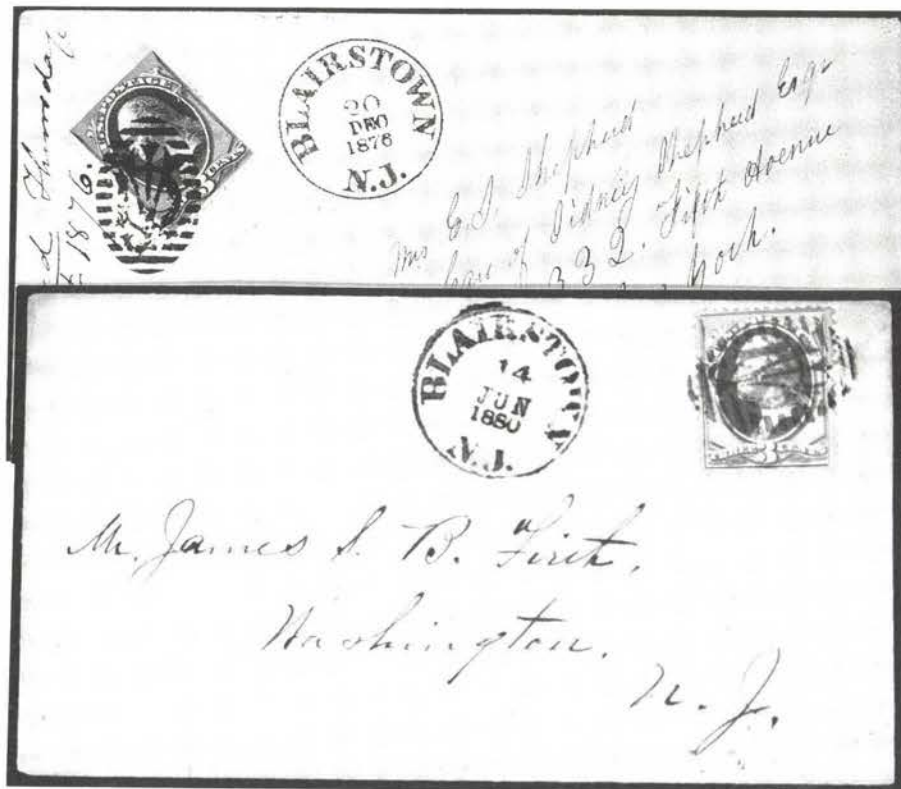 d Thursday
1876.
BLAIRSTOWN
20
DEC
1876
N.J.
Mrs E. S. Shepherd
Care of Sidney Shepherd Esqr
332. Fifth Avenue
York.
BLAIRSTOWN
14
JUN
1880
N.J.
Mr. James S. B. Firth,
Washington.
N. J.